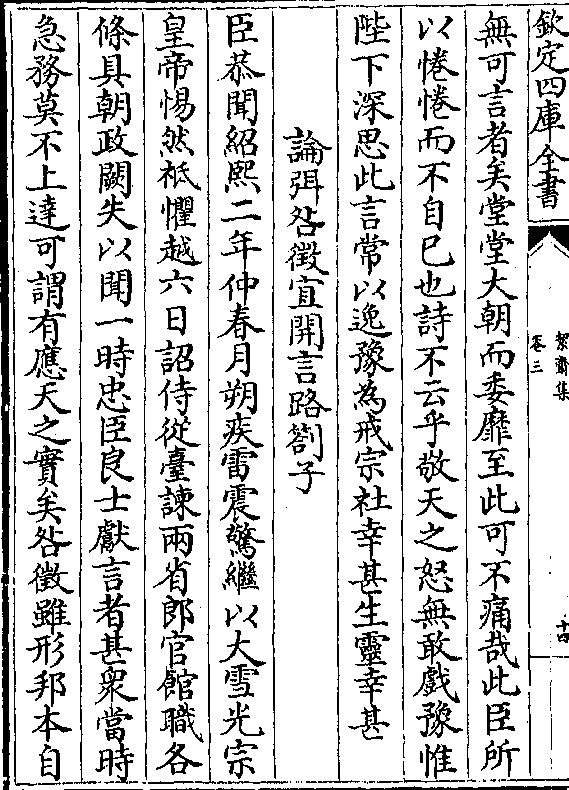 欽定四庫全書
絜齋集
卷三
十四
無可言者矣堂堂大朝而委靡至此可不痛哉此臣所
以惓惓而不自已也詩不云乎敬天之怒無敢戲豫惟
陛下深思此言常以逸豫為戒宗社幸甚生靈幸甚
論弭咎徵宜開言路劄子
臣恭聞紹熙二年仲春月朔疾雷震驚繼以大雪光宗
皇帝惕然祗懼越六日詔侍從臺諫兩省郎官館職各
條具朝政闕失以聞一時忠臣良士獻言者甚衆當時
急務莫不上達可謂有應天之實矣咎徵雖形邦本自